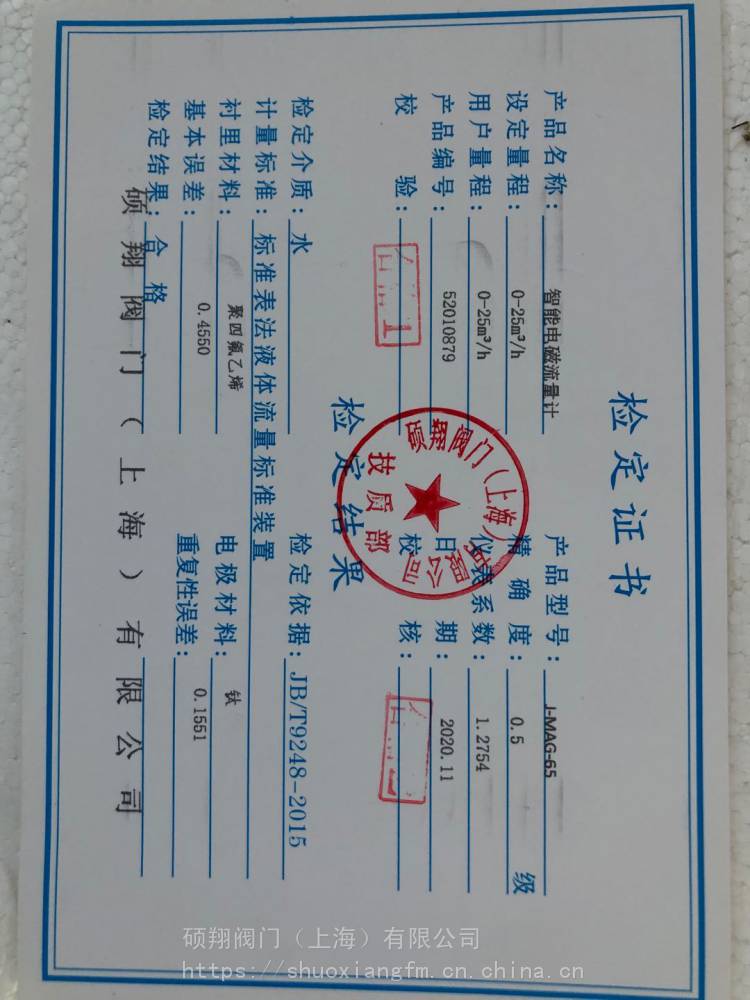 检定证书
产品名称：智能电磁流量计 产品型号：J-MAG-65
设定量程：0-25m³/h 精确度：0.5 级
用户量程：0-25m³/h 仪表系数：1.2754
产品编号：52010879 日期：2020.11
校验： 校核：
硕翔阀门（上海）有限公司
技质部
检定结果
检定介质：水 检定依据：JB/T9248-2015
计量标准：标准表法液体流量标准装置
衬里材料：聚四氟乙烯 电极材料：钛
基本误差：0.4550 重复性误差：0.1551
检定结果：合格
硕翔阀门（上海）有限公司
硕翔阀门（上海）有限公司
https://shuoxiangfm.cn.china.cn